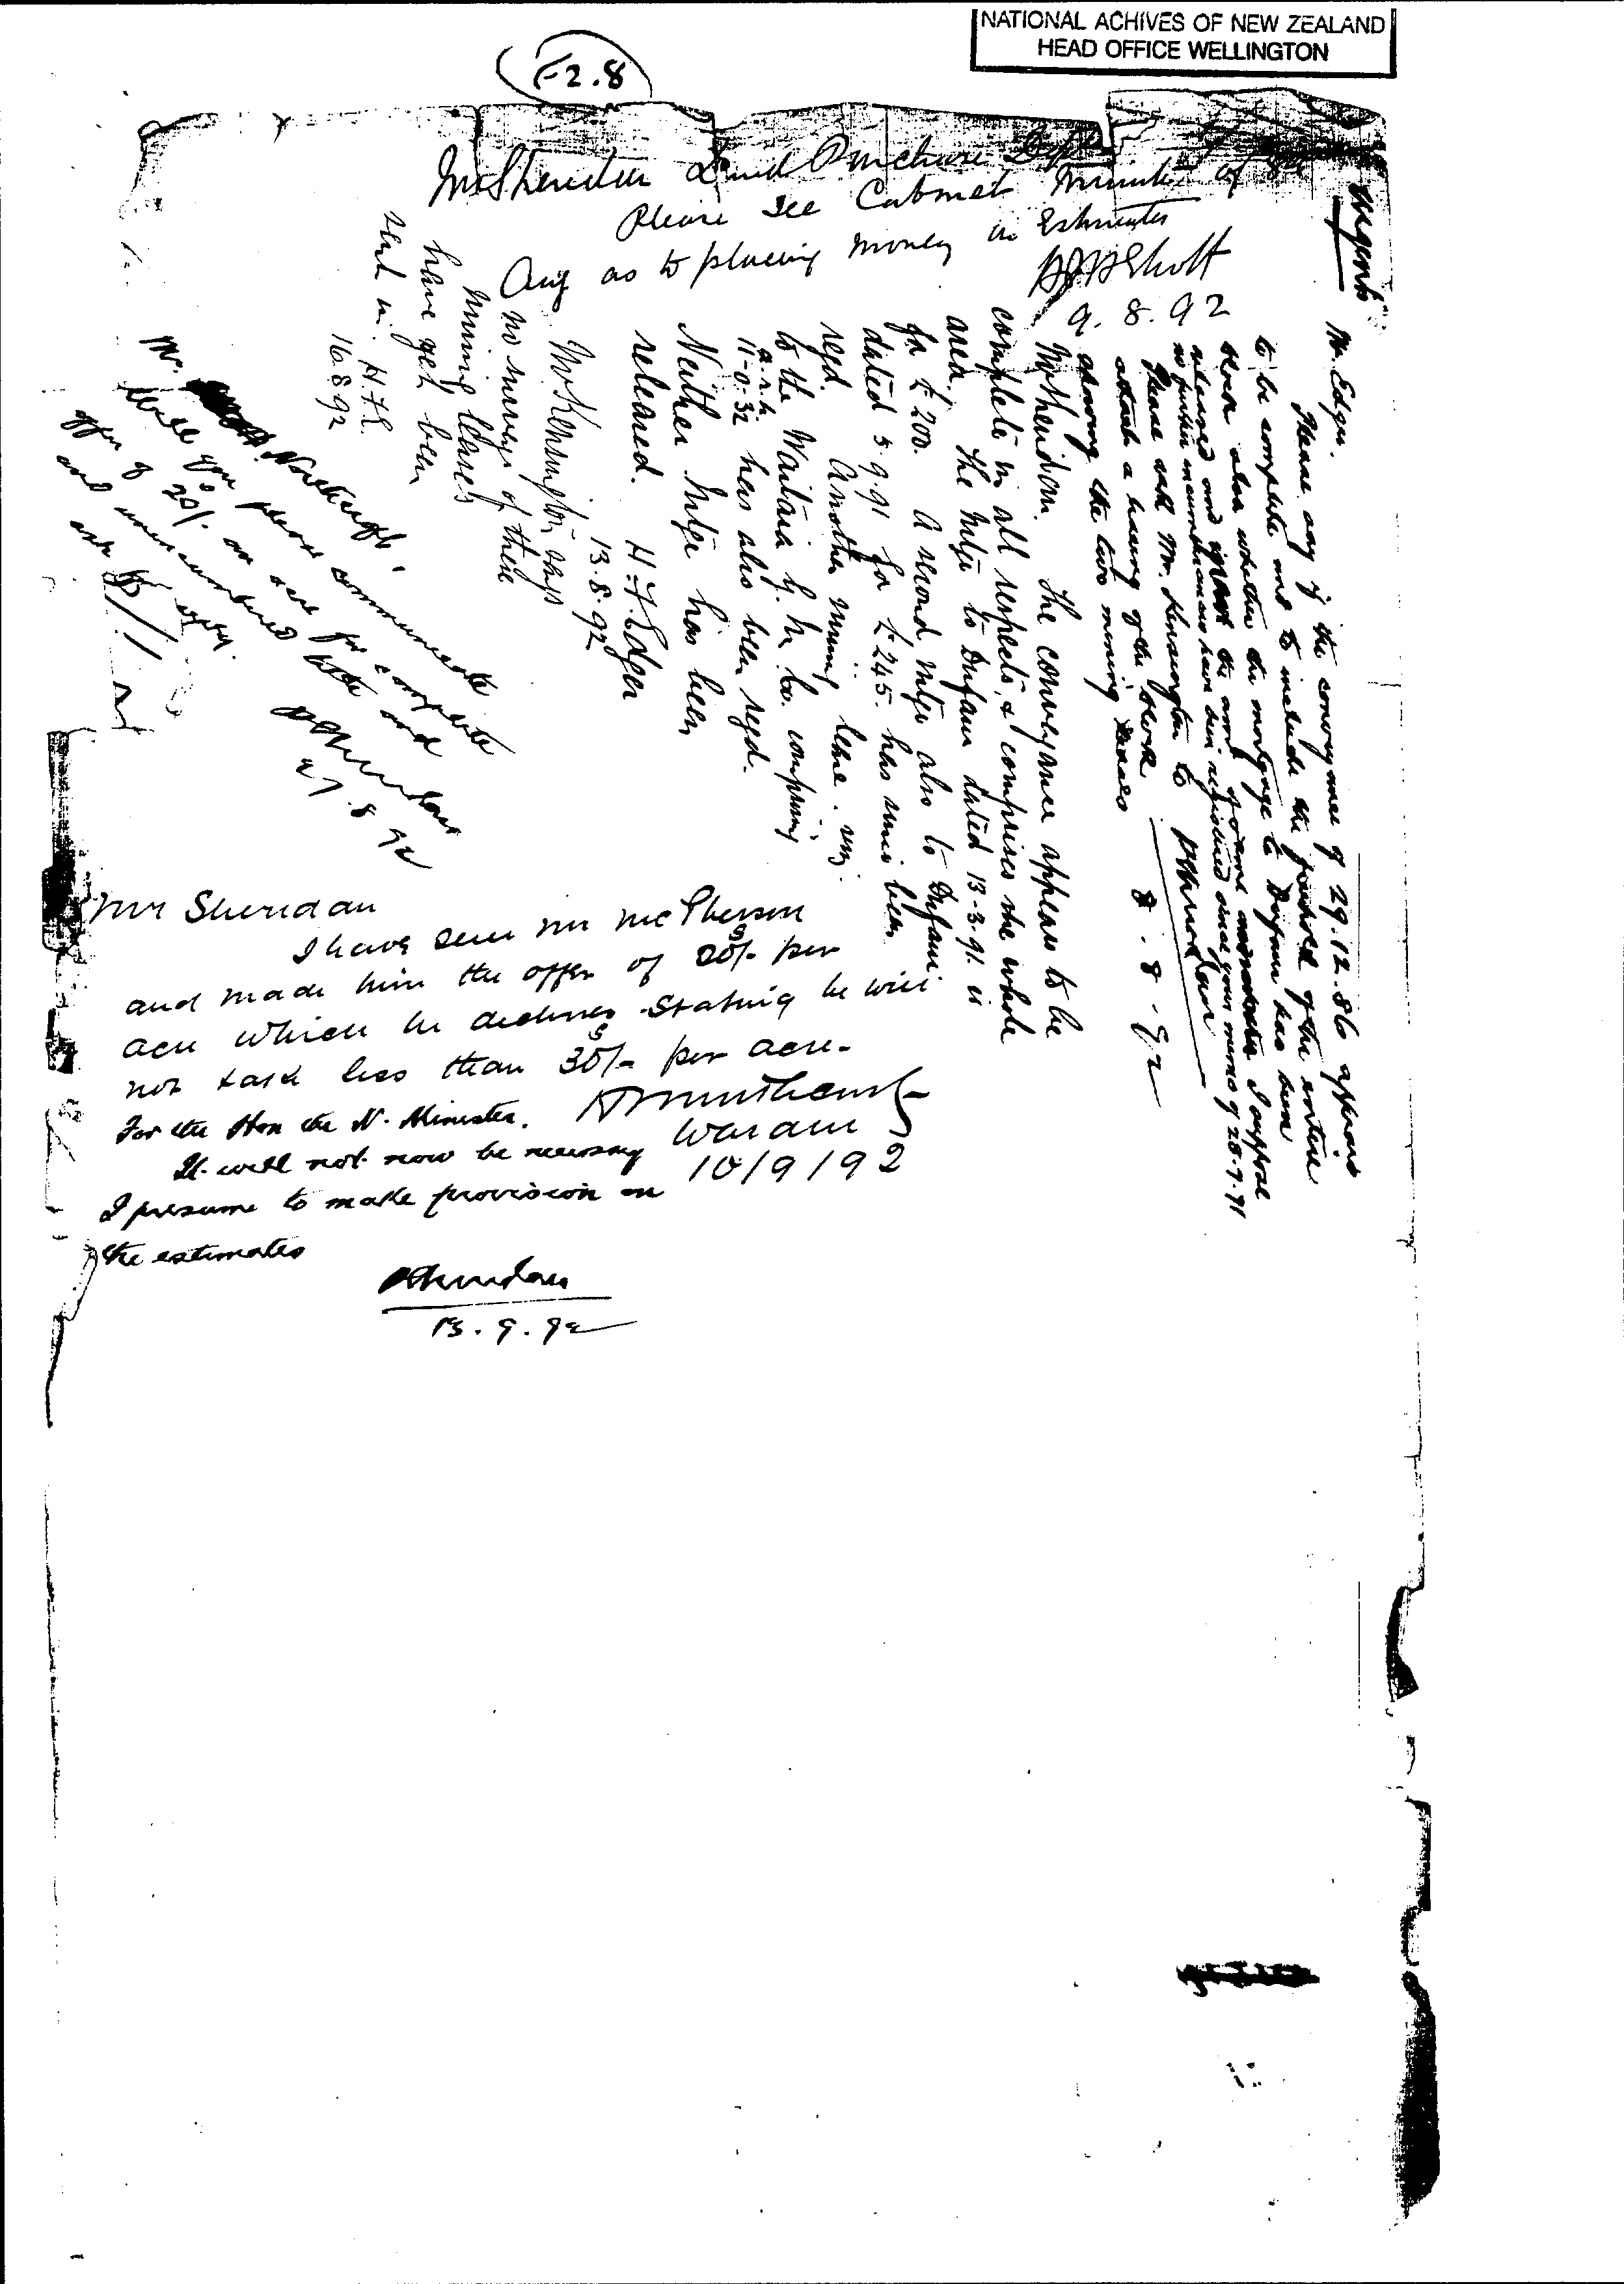 NATIONAL ACHIVES OF NEW ZEALAND
HEAD OFFICE WELLINGTON
F2.8
Mr Sheridan Land Purchase Dept
Please see Cabinet Minute of 8th
Aug as to placing money on Estimates
9.8.92
Urgent
Mr. Edger.
Please say if the conveyance of 29.12.86 appears
to be complete and to include the freehold of the entire
block also whether the mortgage to Dufaur has been
released and if not the amt of same I suppose
no further incumbrances have been registered since your memo of 28.7.91
Please ask Mr. Kensington to
attach a tracing of the block
showing the two mining leases
8.8.92
Mr Sheridan. The conveyance appears to be
complete in all respects, & comprises the whole
area. The mtge to Dufaur dated 13-3-91 is
for £200. A second mtge also to Dufaur
dated 5.9.91 for £245 has since been
regd. Another mining lease, viz:
to the Waitaia G. M. Co. comprising
a. r. p.
11-0-32 has also been regd.
Neither mtge has been
released. H.F. Edger
13.8.92
Mr Kensington says
no surveys of these
mining leases
have yet been
sent in. H.F.E.
16.8.92
Mr. Northcroft.
Will you please communicate
offer of 20/- an acre for complete
and unencumbered title and
ask for reply.
P Sheridan
27.8.92
Mr Sheridan
I have seen Mr McPherson
and made him the offer of 20/- per
acre which he declines stating he will
not take less than 35/- per acre.
10/9/92
For the Hon the N. Minister.
It will not now be necessary
I presume to make provision on
the estimates
P Sheridan
13.9.92